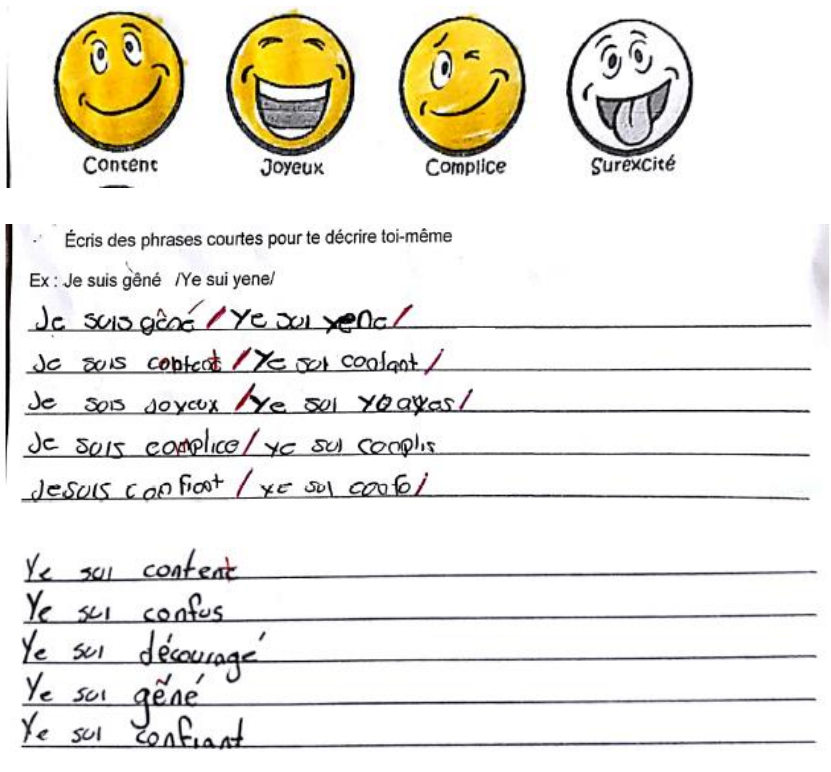 Content Joyeux Complice Surexcité
Écris des phrases courtes pour te décrire toi-même
Ex : Je suis gêné /Ye sui yene/
Je suis gêné / Ye sui yene /
Je suis content / Ye sui contant /
Je sois Joyeux / Ye sui
Je suis complice / ye sui complis
Je suis confiant / ye sui
Ye sui content
Ye sui confus
Ye sui découragé
Ye sui gêné
Ye sui confiant